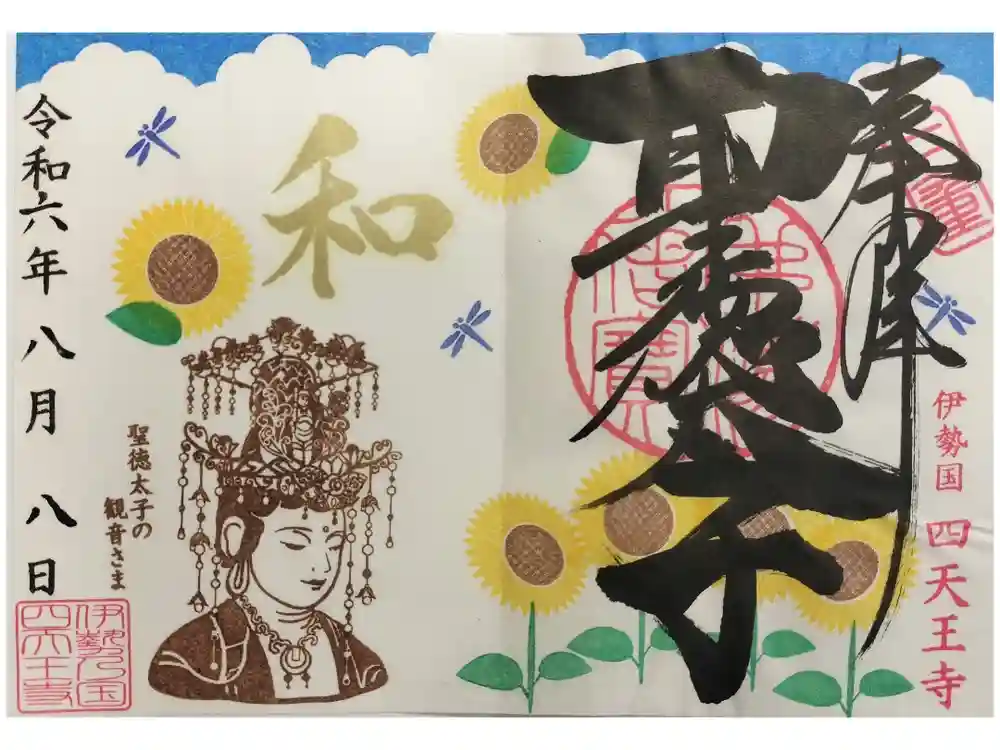 奉拝
聖徳太子
伊勢国 四天王寺
和
聖徳太子の
観音さま
令和六年 八月 八日
伊勢乃国
四天王寺